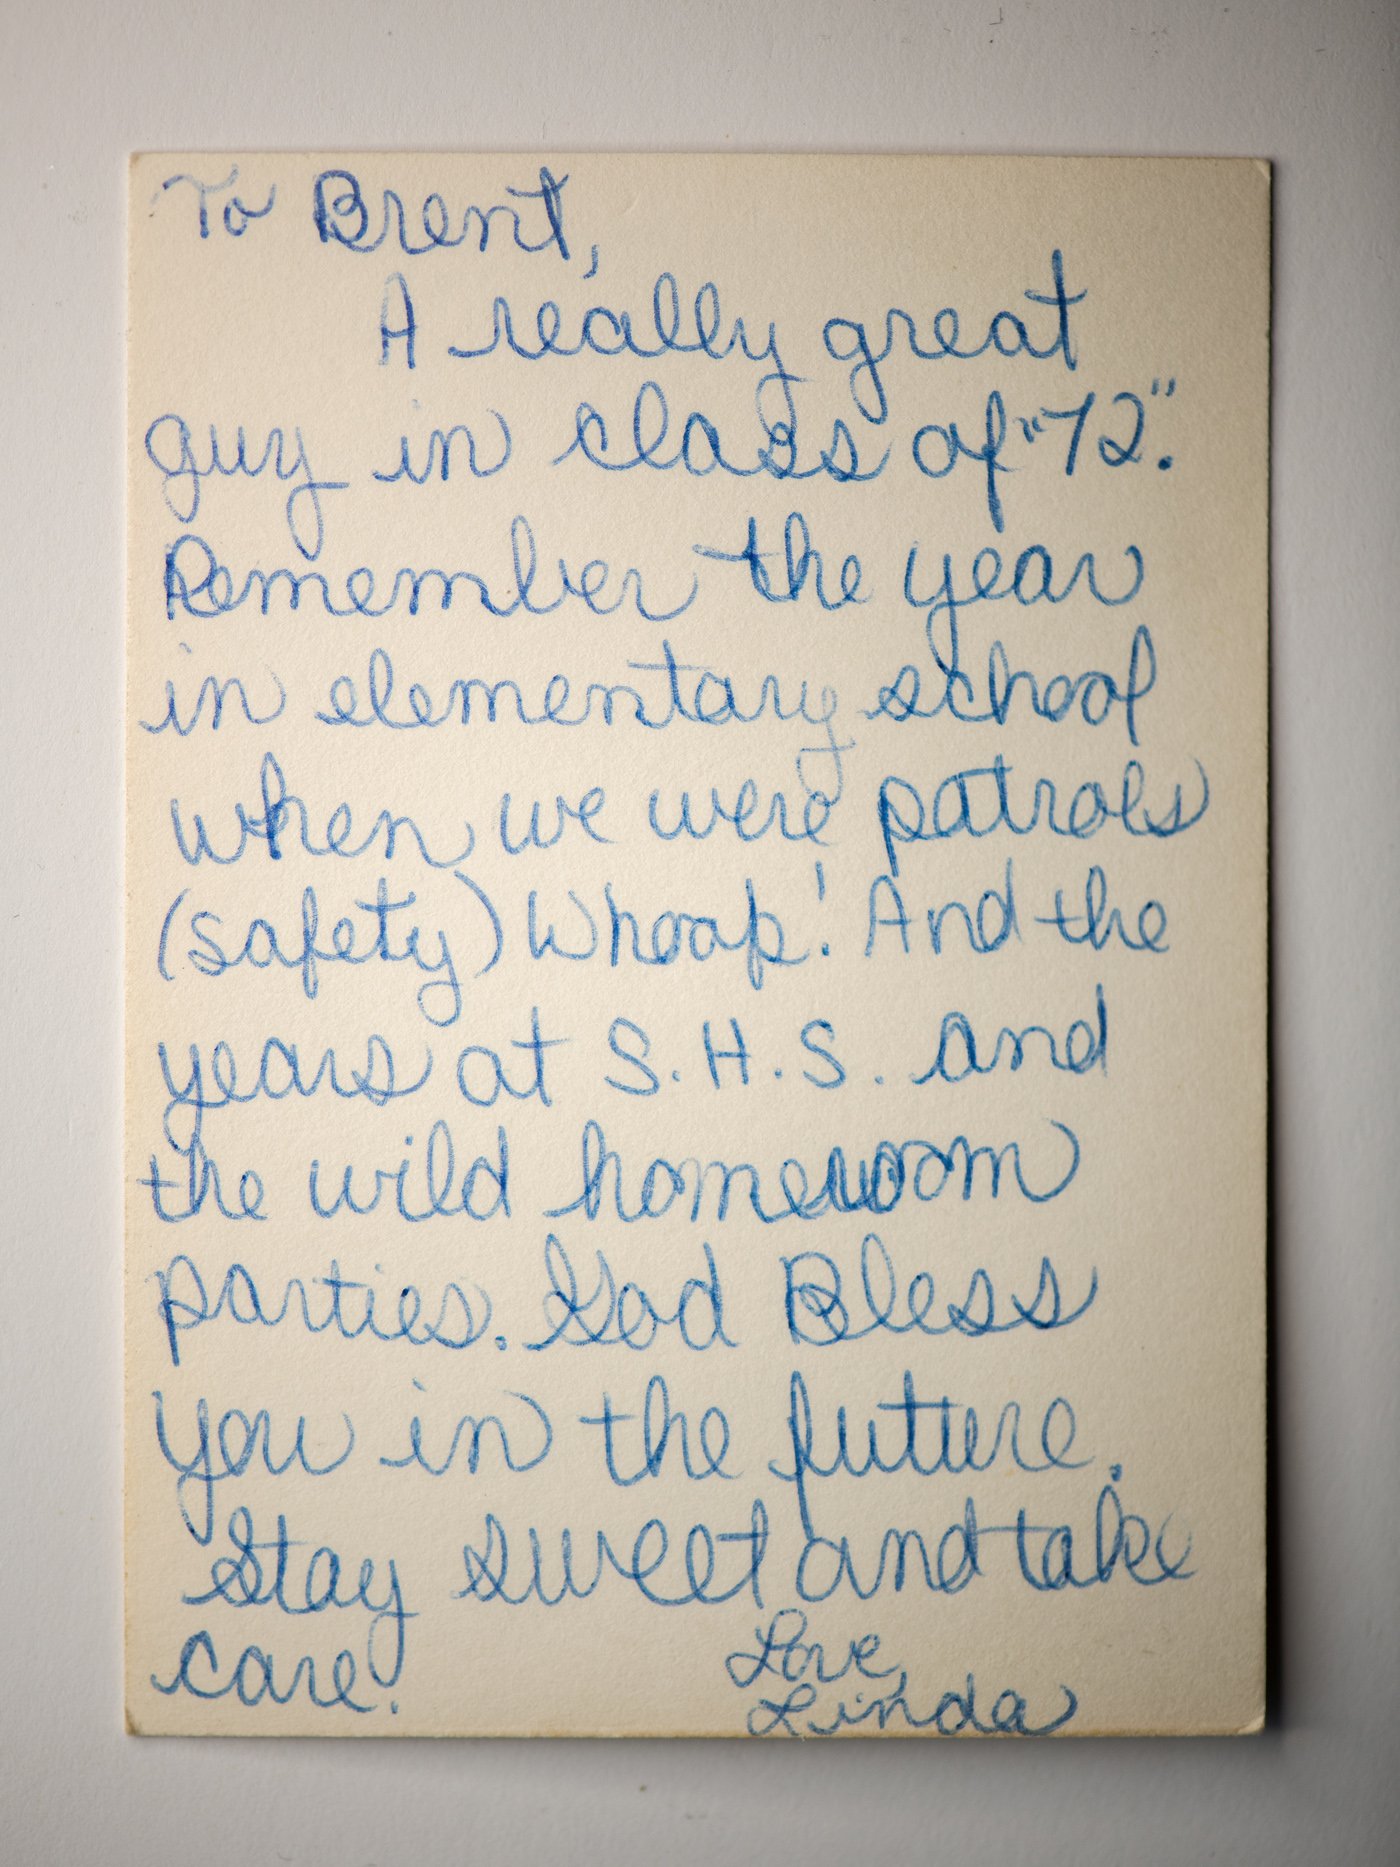 To Brent,
A really great
guy in class of "72".
Remember the year
in elementary school
when we were patrols
(safety) Whoop! And the
years at S.H.S. and
the wild homeroom
parties. God Bless
you in the future.
Stay sweet and take
care!
Love,
Linda